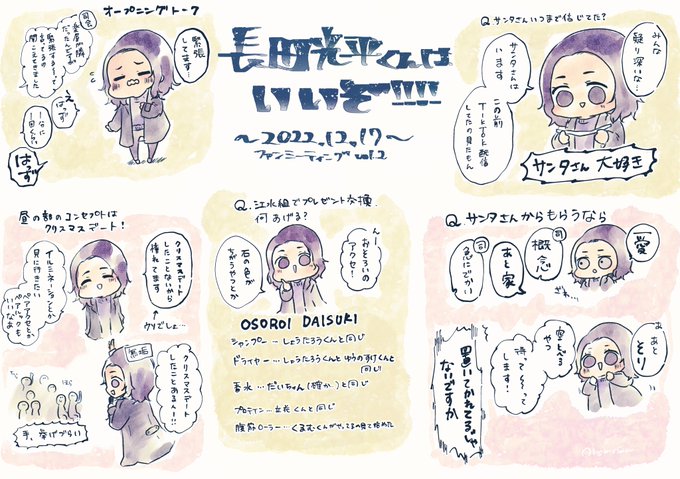 長田光平くんは
いいぞ!!!!!
〜2022.12.17〜
ファンミーティング vol.2
オープニングトーク
司会
緊張
してます…
え
はっず
1なに
1回くらい
はず
Q.サンタさんいつまで信じてた?
みんな
疑り深いな…
サンタさんは
います
この前
TikTok配信
してたの見たもん
サンタさん大好き
昼の部のコンセプトは
クリスマスデート!
クリスマスデート
したことないから
憧れてます
イルミネーションとか
見に行きたい
ペアアクセとか
ペアルックも
いいなぁ
↑
ウソでしょ…
客席
クリスマスデート
したことある人ー!!
手、挙げづらい
Q.江水組でプレゼント交換
何あげる?
んー
おそろいの
アクセ!
石の色が
ちがうやつとか
OSOROI DAISUKI
シャンプー…しょうたろうくんと同じ
ドライヤー…しょうたろうくんとゆうのすけくんと
同じ
香水…だいちゃん(確か…)と同じ
プロテイン…立花くんと同じ
腹筋ローラー…くるむくんがやってるの見て始めた
Q.サンタさんからもらうなら
愛
司
概念
あと家
司
急にでかい
ざわ…
あ
あと
そり
空とべる
やつ
待って〜って
します!
置いてかれてるじゃ
ないですか